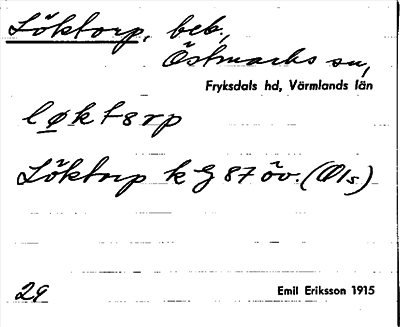 Löktorp, beb.,
Östmarks sn,
Fryksdals hd, Värmlands län
løktɵrp
Löktorp k G 87 öv. (Ols)
29
Emil Eriksson 1915